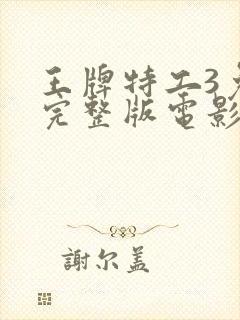 王牌特工3
完整版電影
謝尔盖